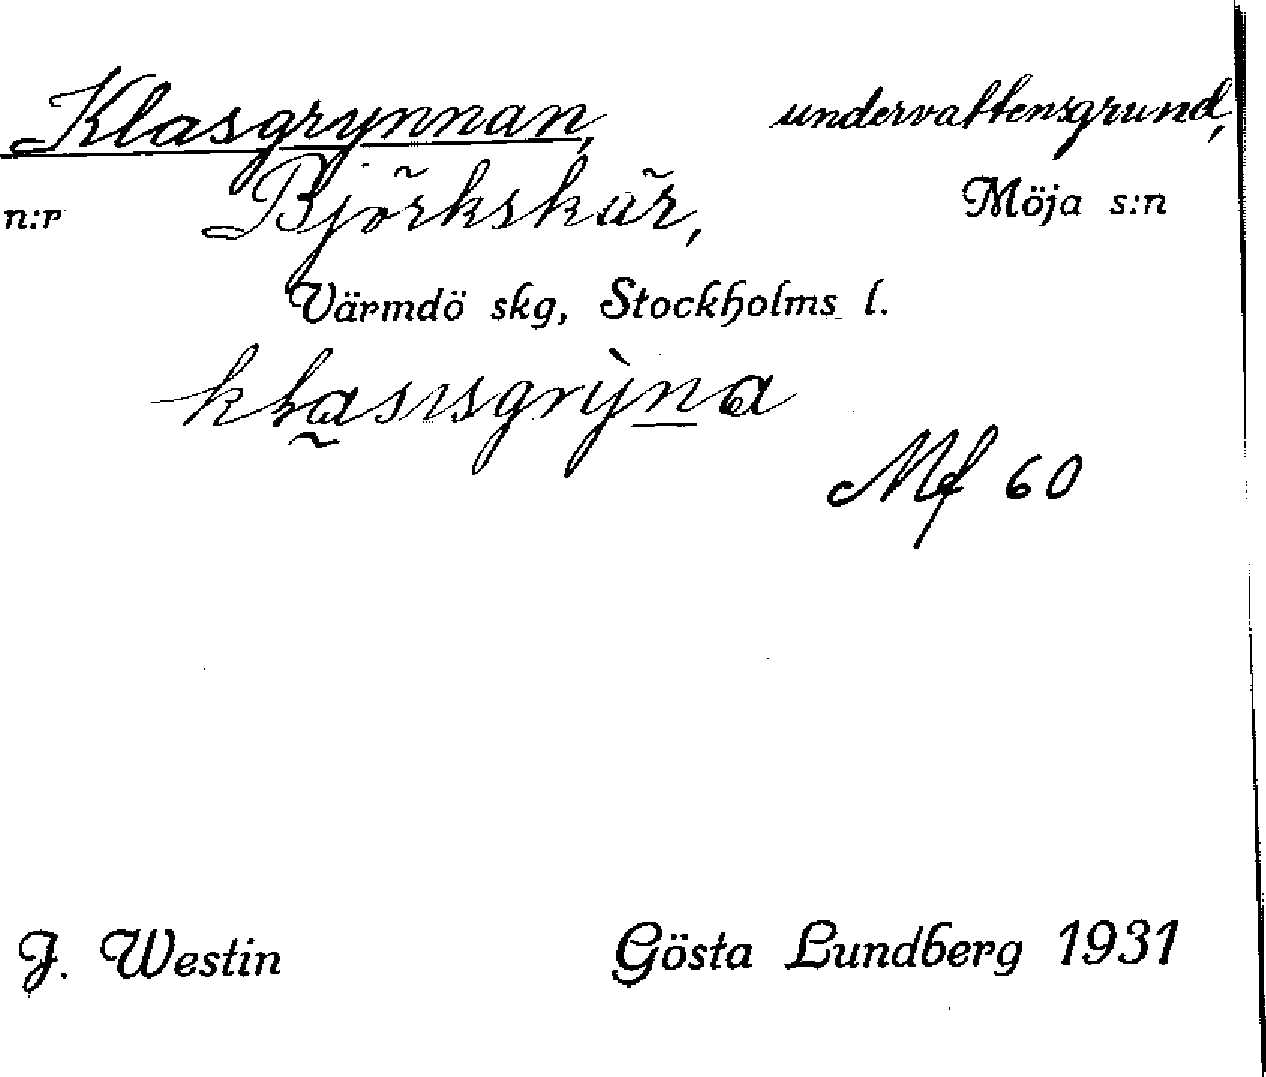 Klasgrynnan, undervattensgrund,
n:r Björkskär, Möja s:n
Värmdö skg, Stockholms l.
Mf 60
J. Westin Gösta Lundberg 1931